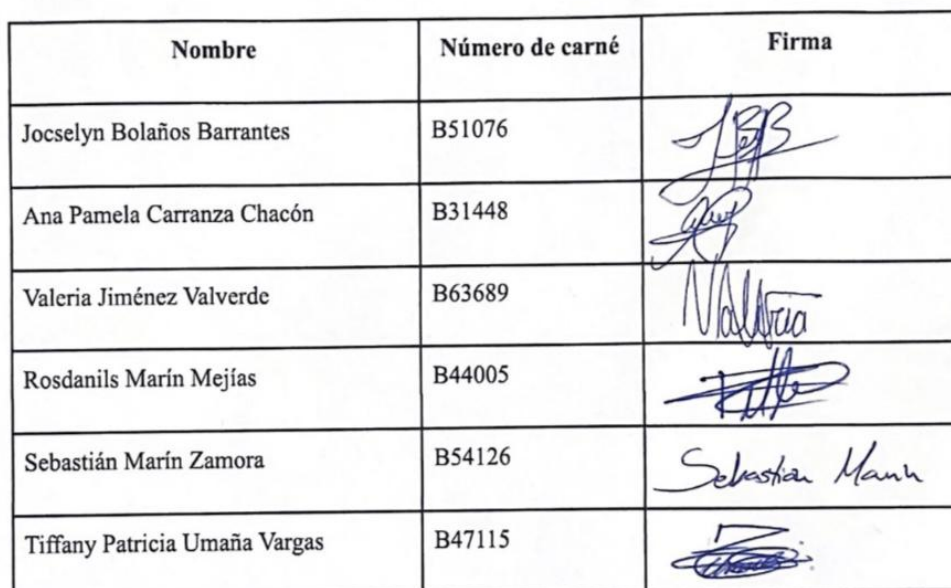 Nombre Número de carné Firma
Jocselyn Bolaños Barrantes B51076
Ana Pamela Carranza Chacón B31448
Valeria Jiménez Valverde B63689 Valeria
Rosdanils Marín Mejías B44005
Sebastián Marín Zamora B54126 Sebastian Marín
Tiffany Patricia Umaña Vargas B47115